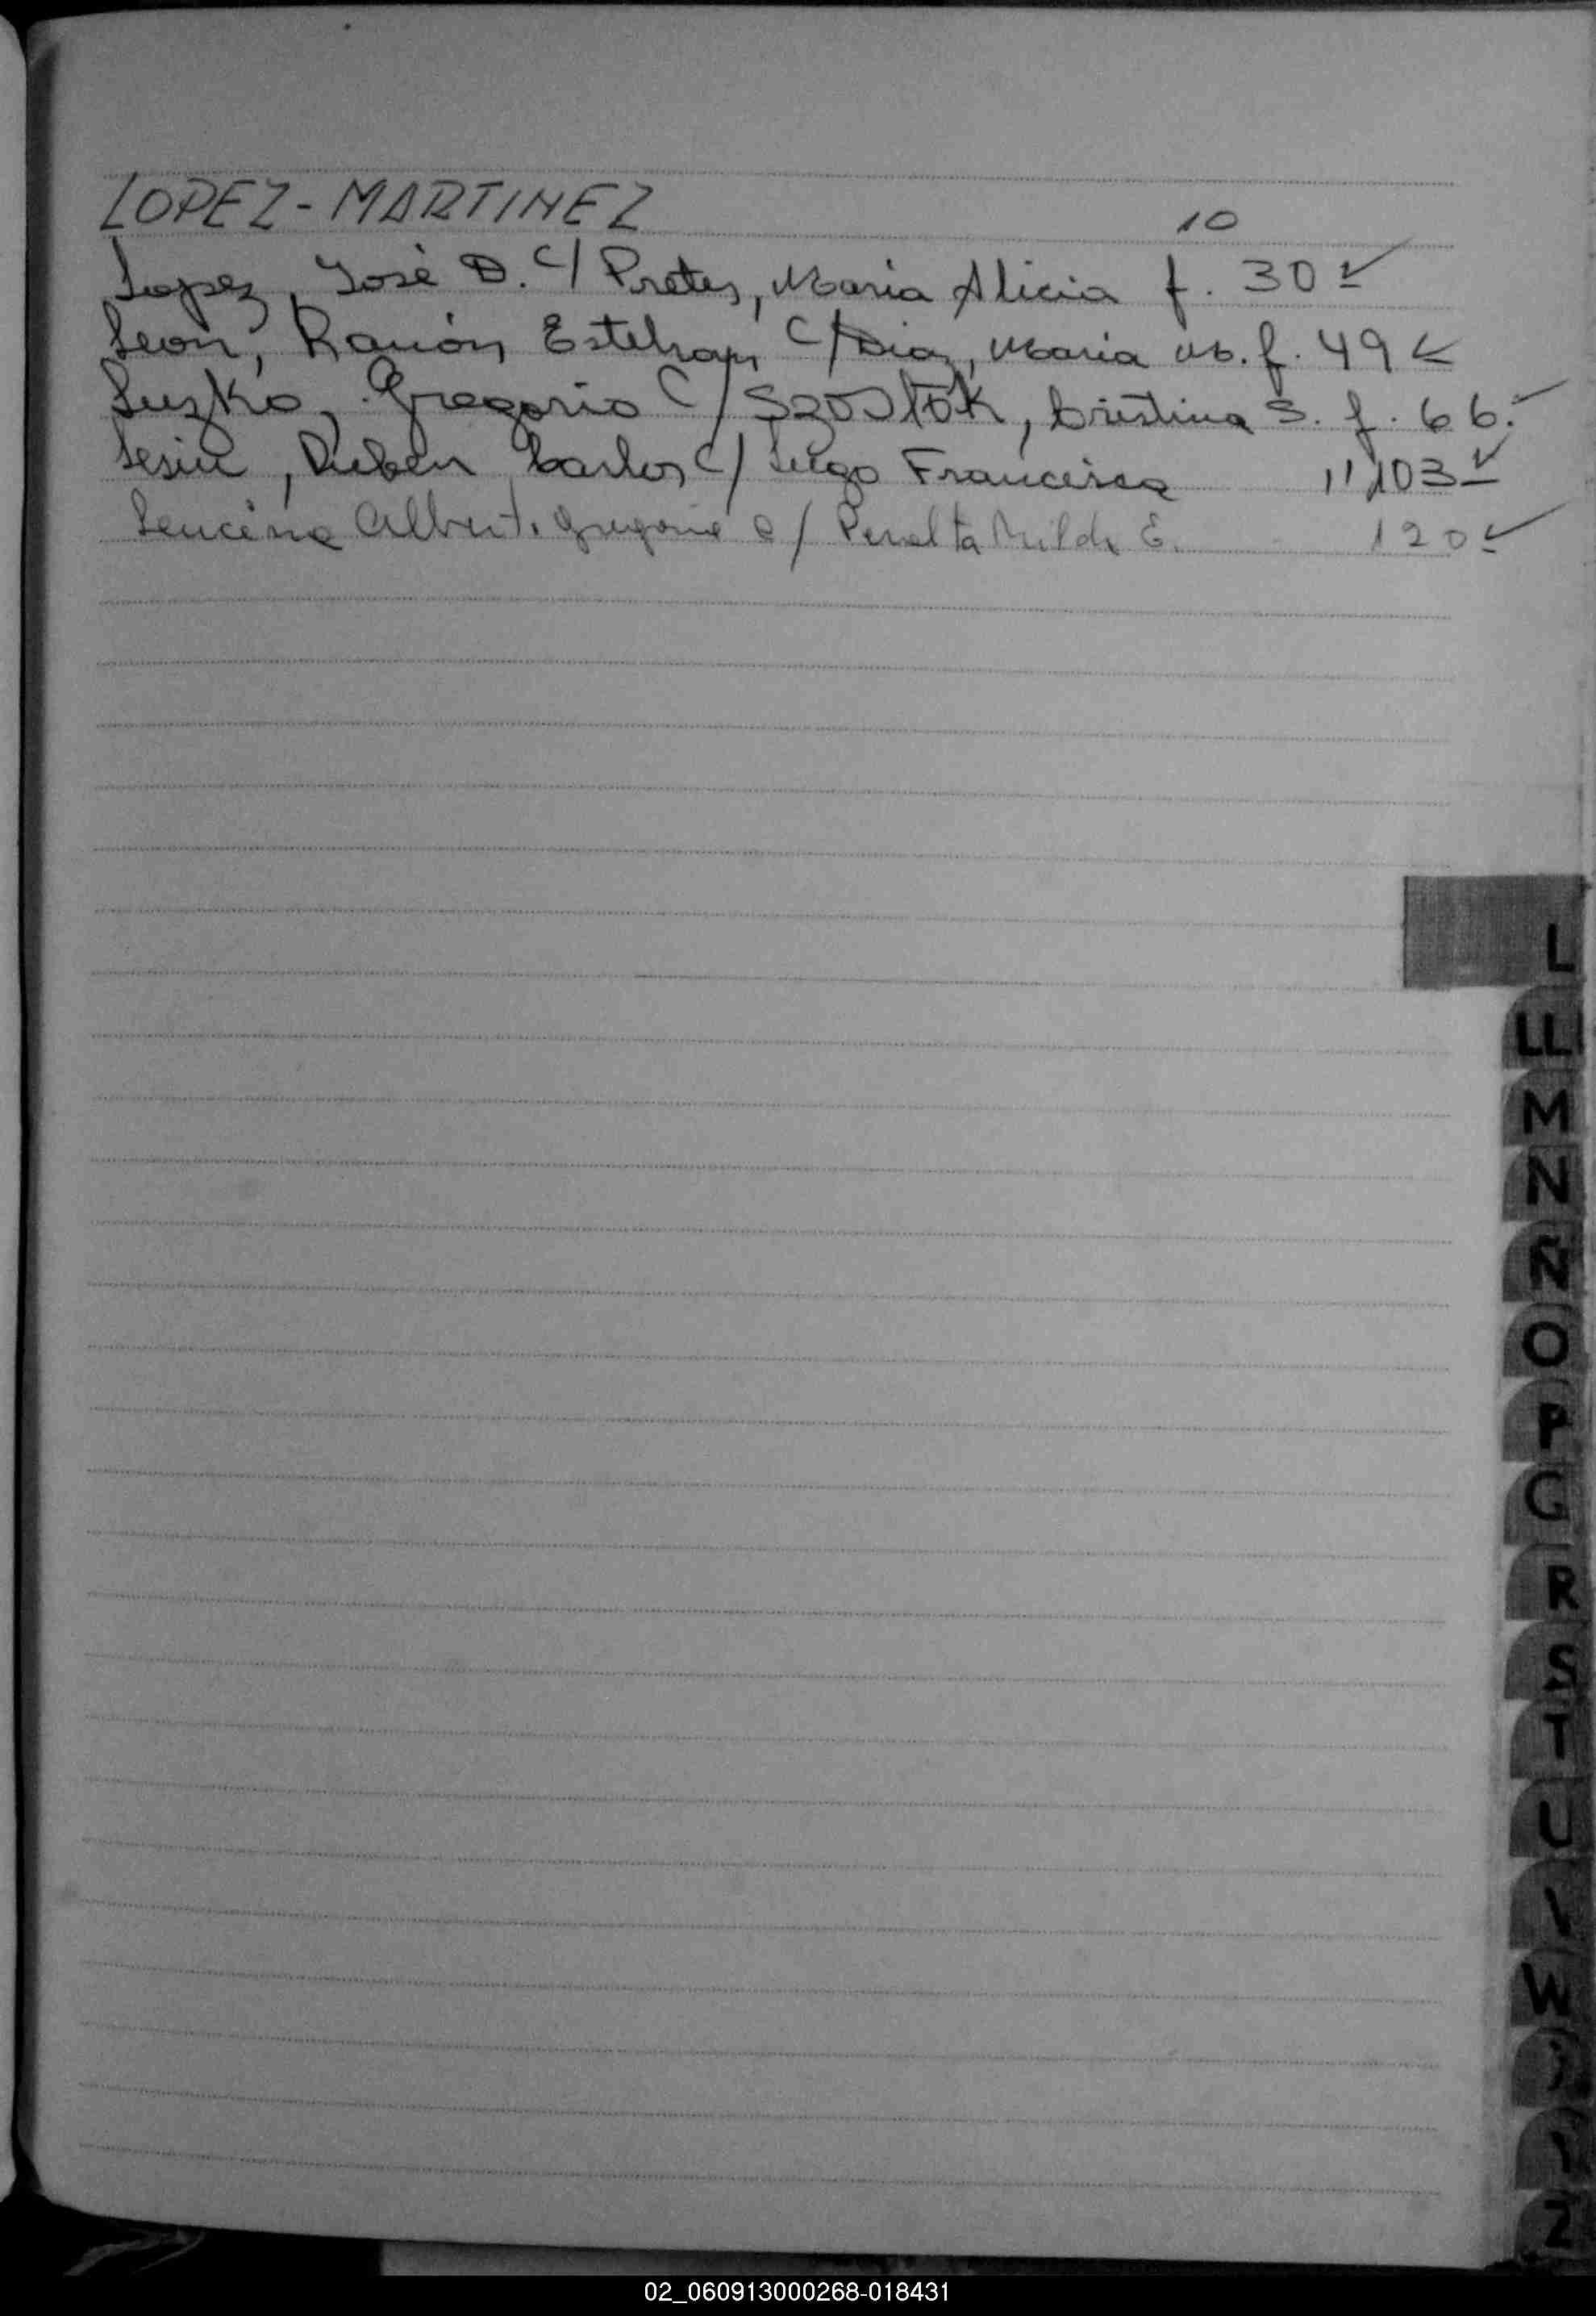 LOPEZ - MARTINEZ 10
Lopez, José D. C/ Pretes, Maria Alicia f. 30
Leon, Ramón Esteban C/ Diaz, Maria M. f. 49
Luzko, Gregorio C/ Szostok, Cristina S. f. 66.
Lesiu, Ruben Carlos C/ Lugo Francisca " 103
Alberto Gregorio c/ Peralta Nilda E. 120
L
LL
M
N
Ñ
O
P
R
S
T
U
W
Z
02_060913000268-018431